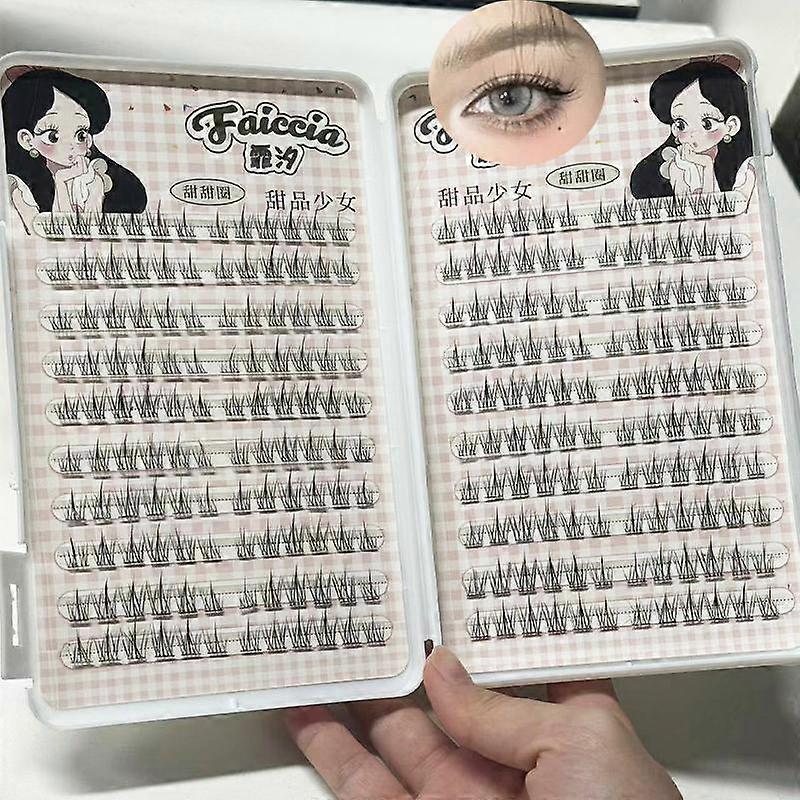 Faiccia
霏汐
甜甜圈
甜品少女
甜品少女
甜甜圈